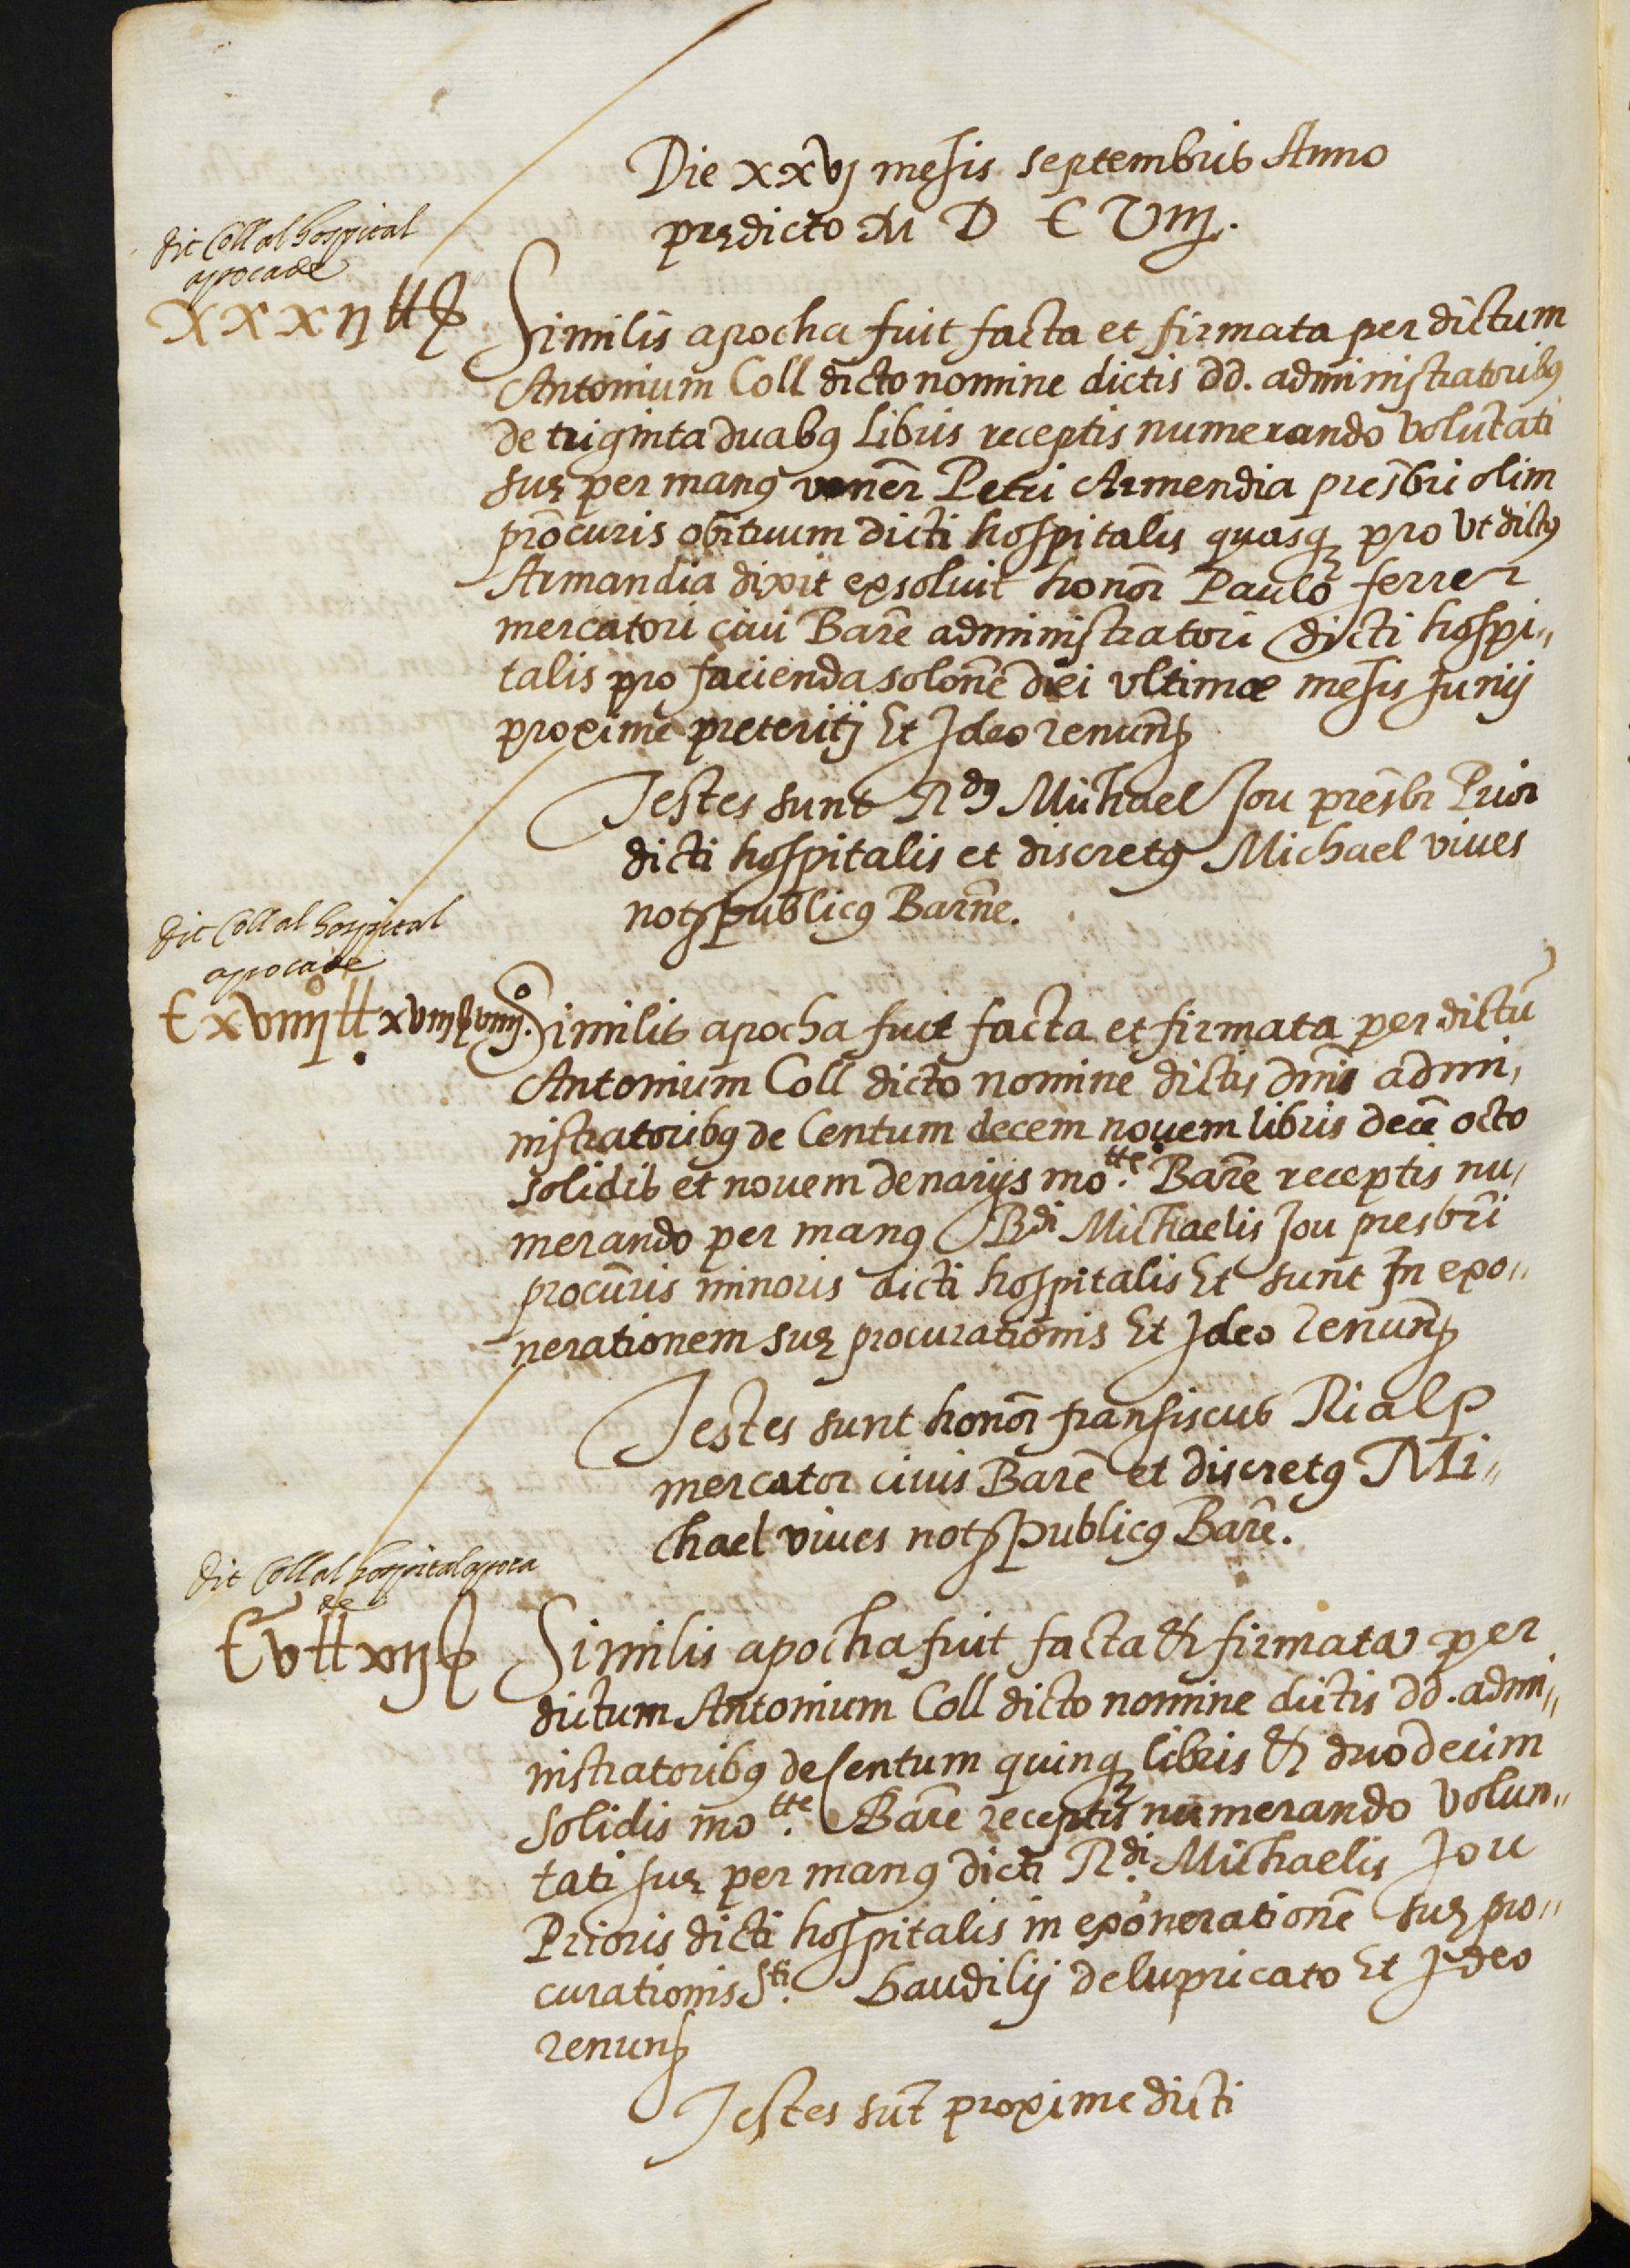 Die xxvj mesis septembris Anno
predicto M D C Viij.
dit Coll al hospital
apoca de
xxxij ll s
Similis apocha fuit facta et firmata per dictum
Antonium Coll dicto nomine dictis dd. administratoribꝰ
de triginta duabꝰ libris receptis numerando volutati
suę per manꝰ venēr Petri Armendia presb̄ri olim
prōcuris obituum dicti hospitalis quasqꝫ pro vt dictꝰ
Armandia dixit exsoluit honōr Paulo ferrer
mercatori ciui Barē administratori dicti hospi„
talis pro facienda solōne diei vltimæ mesis Junij
proxime preteritj Et Ideo renunȩ
Testes sunt Rdꝰ Michael Jou presb̄r Prior
dicti hospitalis et discretꝰ Michael viues
notȩ publicꝰ Barn̄e.
dit Coll al hospital
apoca de
C xviiij ll xviij s viiij. Similis apocha fuit facta et firmata per dictū
Antonium Coll dicto nomine dictis dn̄is admi,
nistratoribꝰ de Centum decem nouem libris decē octo
solidis et nouem denarijs mo.tte Barē receptis nu,
merando per manꝰ Rdi Michaelis Jou presbr̄i
procūris minoris dicti hospitalis Et sunt In exo„
nerationem suę procurationis Et Ideo renunȩ
Testes sunt honōr fransiscus Rialp
mercator ciuis Barē et discretꝰ Mi„
chael viues notȩ publicꝰ Barē.
dit Coll al hospital apoca
de
C v ll xij s
Similis apocha fuit facta & firmata per
dictum Antonium Coll dicto nomine dictis dd. admi„
nistratoribꝰ de Centum quinqꝫ libris & duodecim
solidis mo.tte Barē receptis numerando volun„
tati suę per manꝰ dicti R.di Michaelis Jou
Prioris dicti hospitalis in exonerationē suę pro„
curationis S.ti baudilij de lupricato Et Ideo
renunȩ
Testes sūt proxime dicti